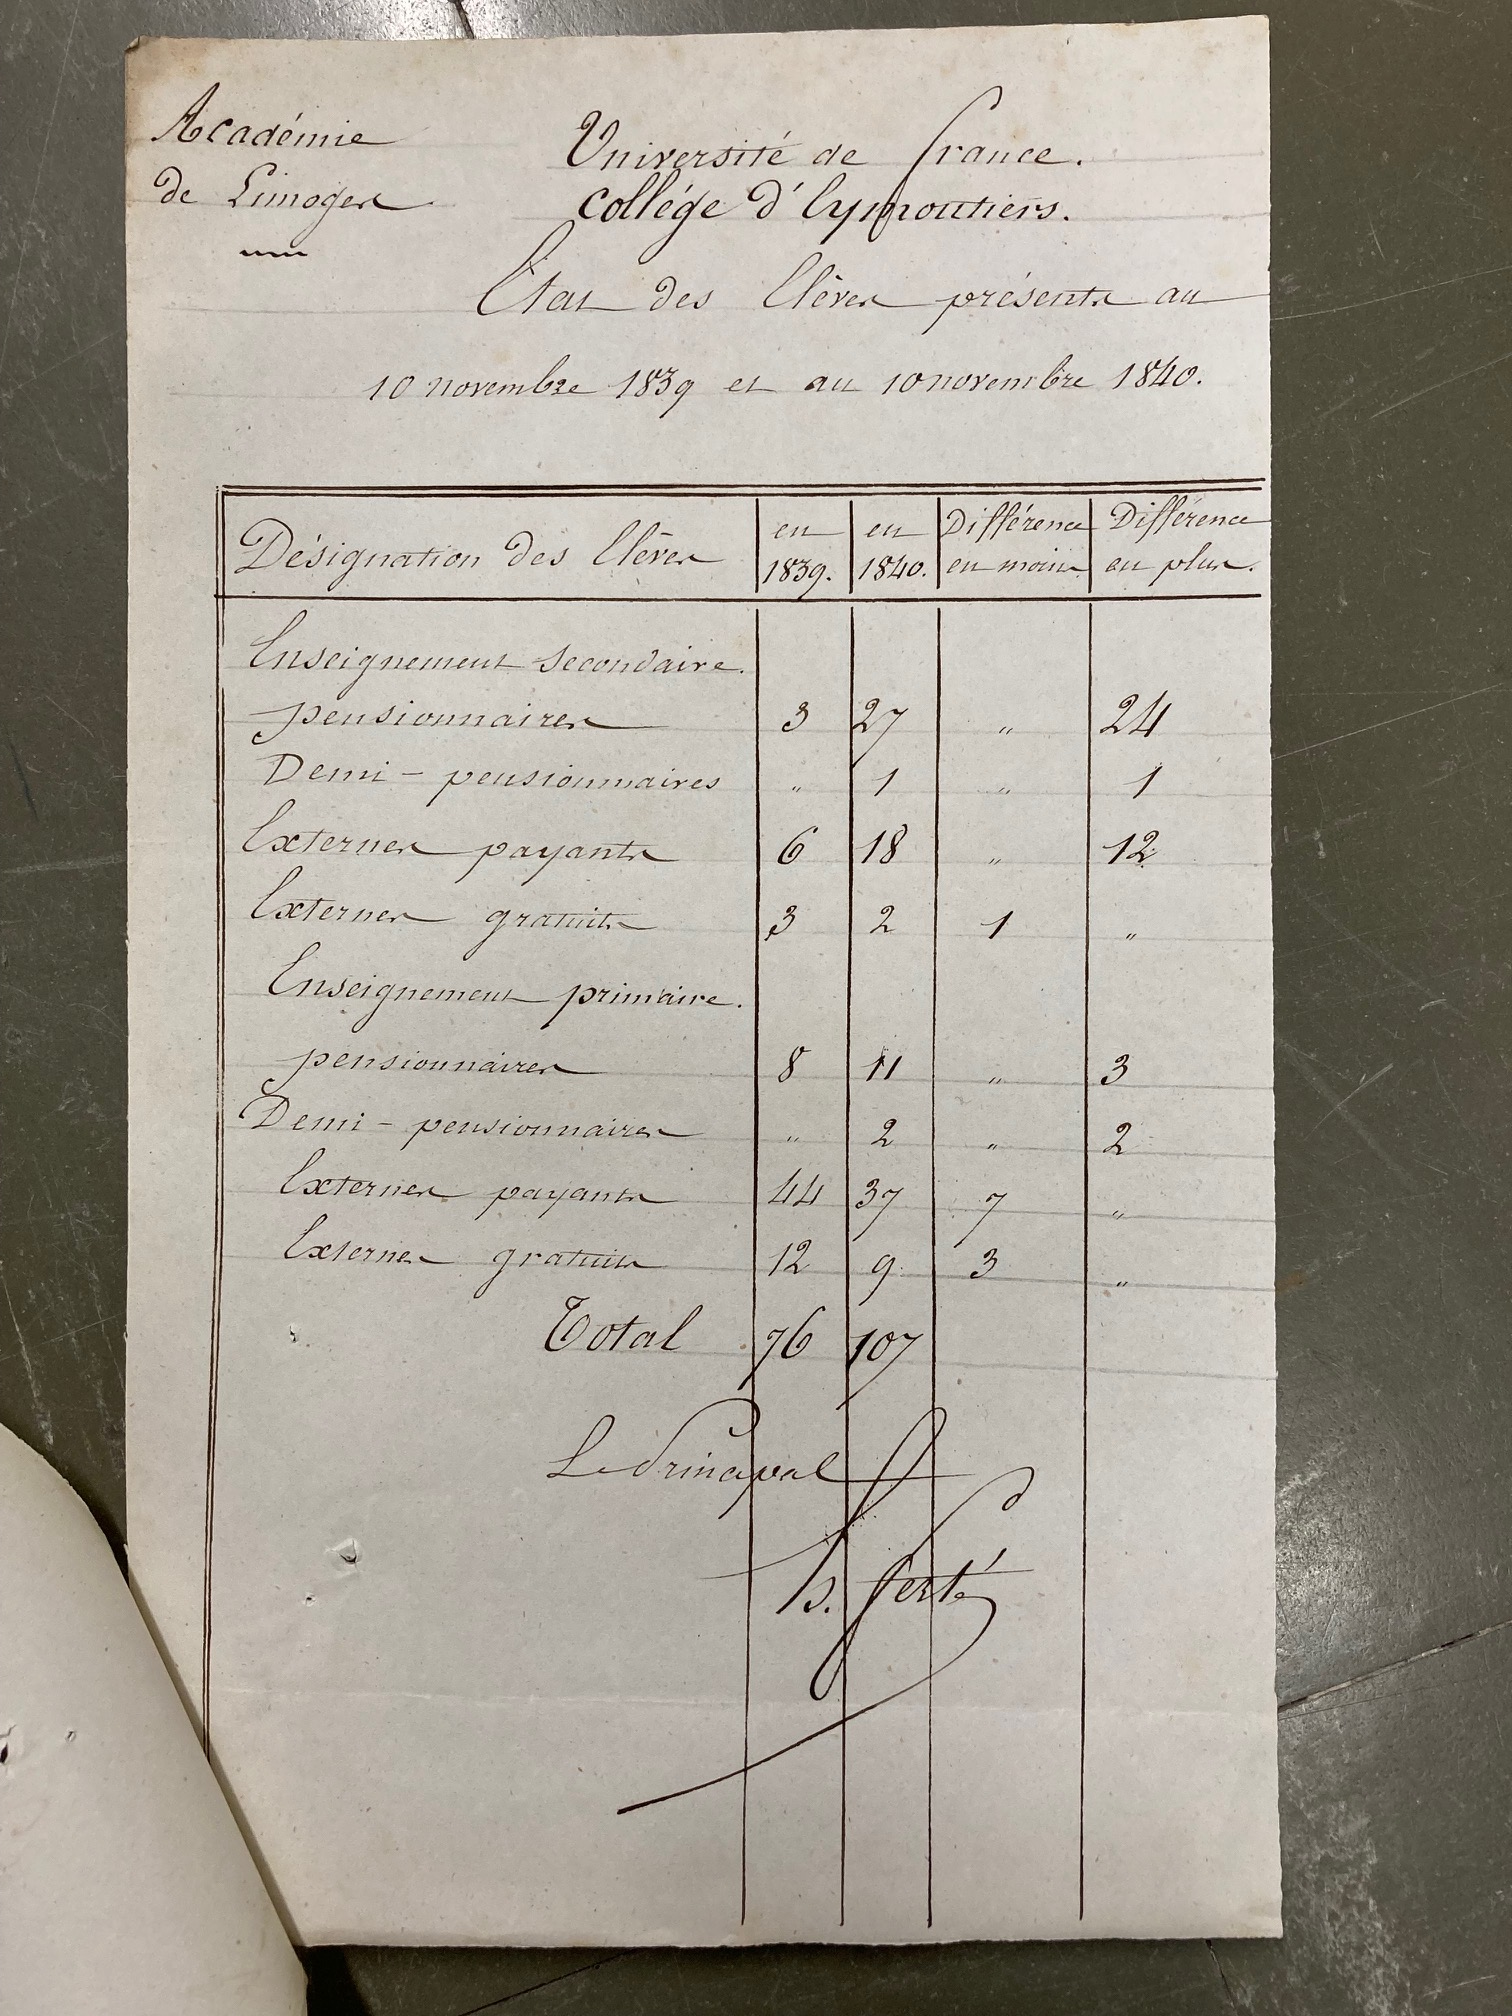 Académie
de Limoges
Université de france.
Collége d'Eymoutiers.
Etat des Elèves présents au
10 novembre 1839 et au 10 novembre 1840.
Désignation des Elèves | en 1839. | en 1840. | Différence en moins | Différence en plus.
Enseignement secondaire.
pensionnaires 3 27 " 24
Demi-pensionnaires " 1 " 1
Externes payants 6 18 " 12
Externes gratuits 3 2 1 "
Enseignement primaire.
pensionnaires 8 11 " 3
Demi-pensionnaires " 2 " 2
Externes payants 44 37 7 "
Externes gratuits 12 9 3 "
Total 76 107
Le Principal
ferté